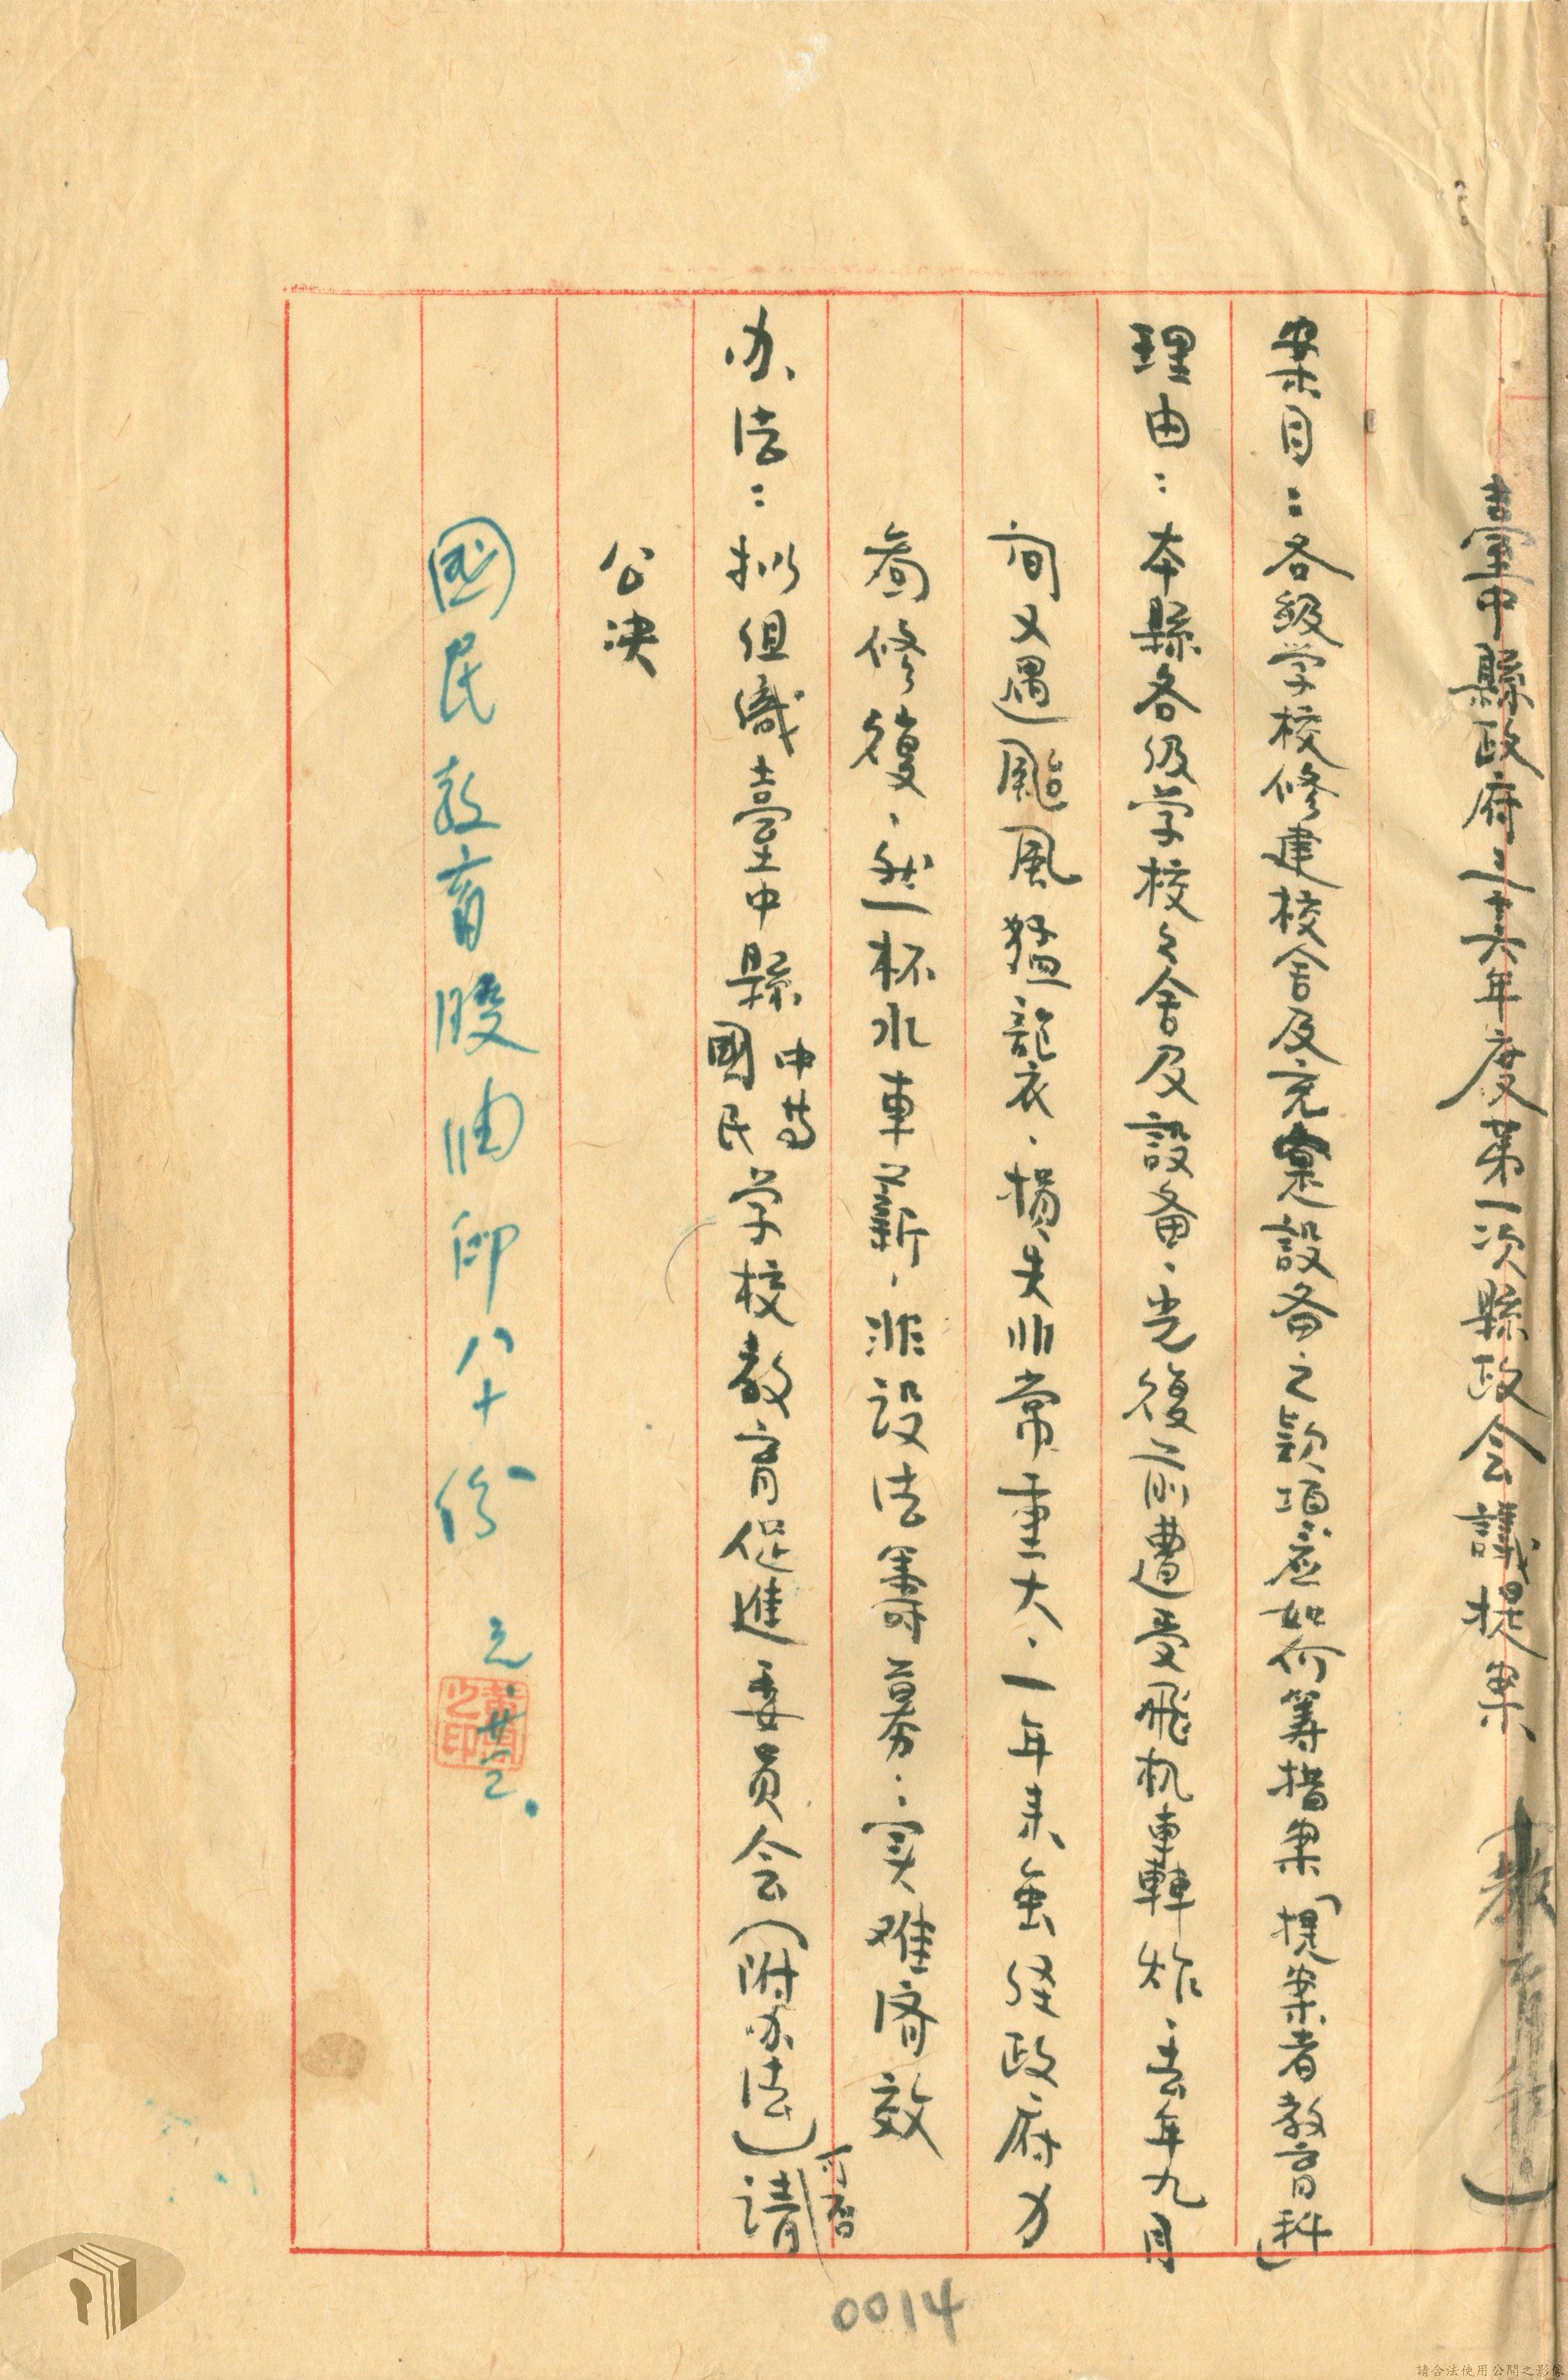 臺中縣政府三十六年度第一次縣政会議提案
案目：各級学校修建校舍及充實設备之款項应如何筹措案（提案者教育科）
理由：本縣各级学校々舍及設备、光復之前遭受飛机轟炸、去年九月
间又遇颱風猛襲、損失非常重大、一年来虽经政府力
啚修復、然杯水車薪、非設法籌募、实难济效
办法：拟组織臺中縣中等國民学校教育促進委員会（附办法）可否請
公决
國民教育股油印八十份 元.廿三.
0014
請合法使用公開之影像